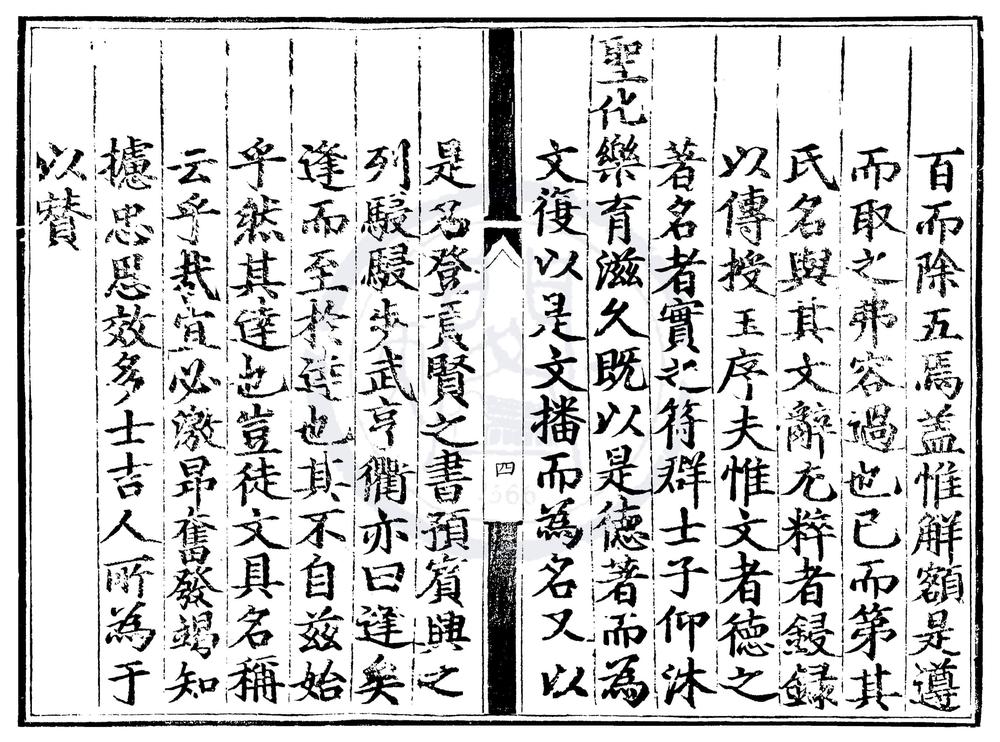 百而除五焉盖惟解額是遵
而取之弗容過也已而第其
氏名與其文辭尤粹者鋟録
以傳授王序夫惟文者德之
著名者實之符群士子仰沐
聖化樂育滋久既以是德著而為
文復以是文播而為名又以
四
是名登貢賢之書預賓興之
列駸駸步武亨衢亦曰逹矣
逹而至於逹也其不自兹始
乎然其逹也豈徒文具名稱
云乎哉宜必激昂奮發竭知
攄忠思效多士吉人所為于
以贊